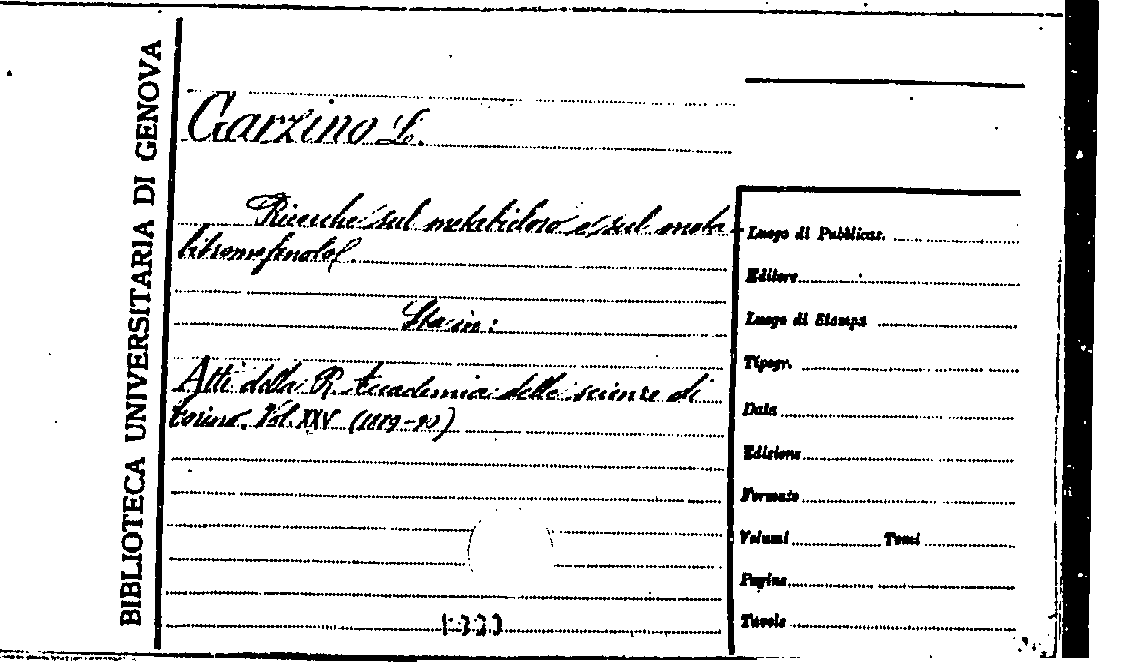 BIBLIOTECA UNIVERSITARIA DI GENOVA
Garzino L.
Ricerche sul metabicloro e sul meta-
bibromofenolo.
Sta in:
Atti della R. Accademia delle scienze di
Torino. Vol. XXV (1889-90)
Luogo di Pubblicaz.
Editore
Luogo di Stampa
Tipogr.
Data
Edizione
Formato
Volumi Tomi
Pagine
Tavole